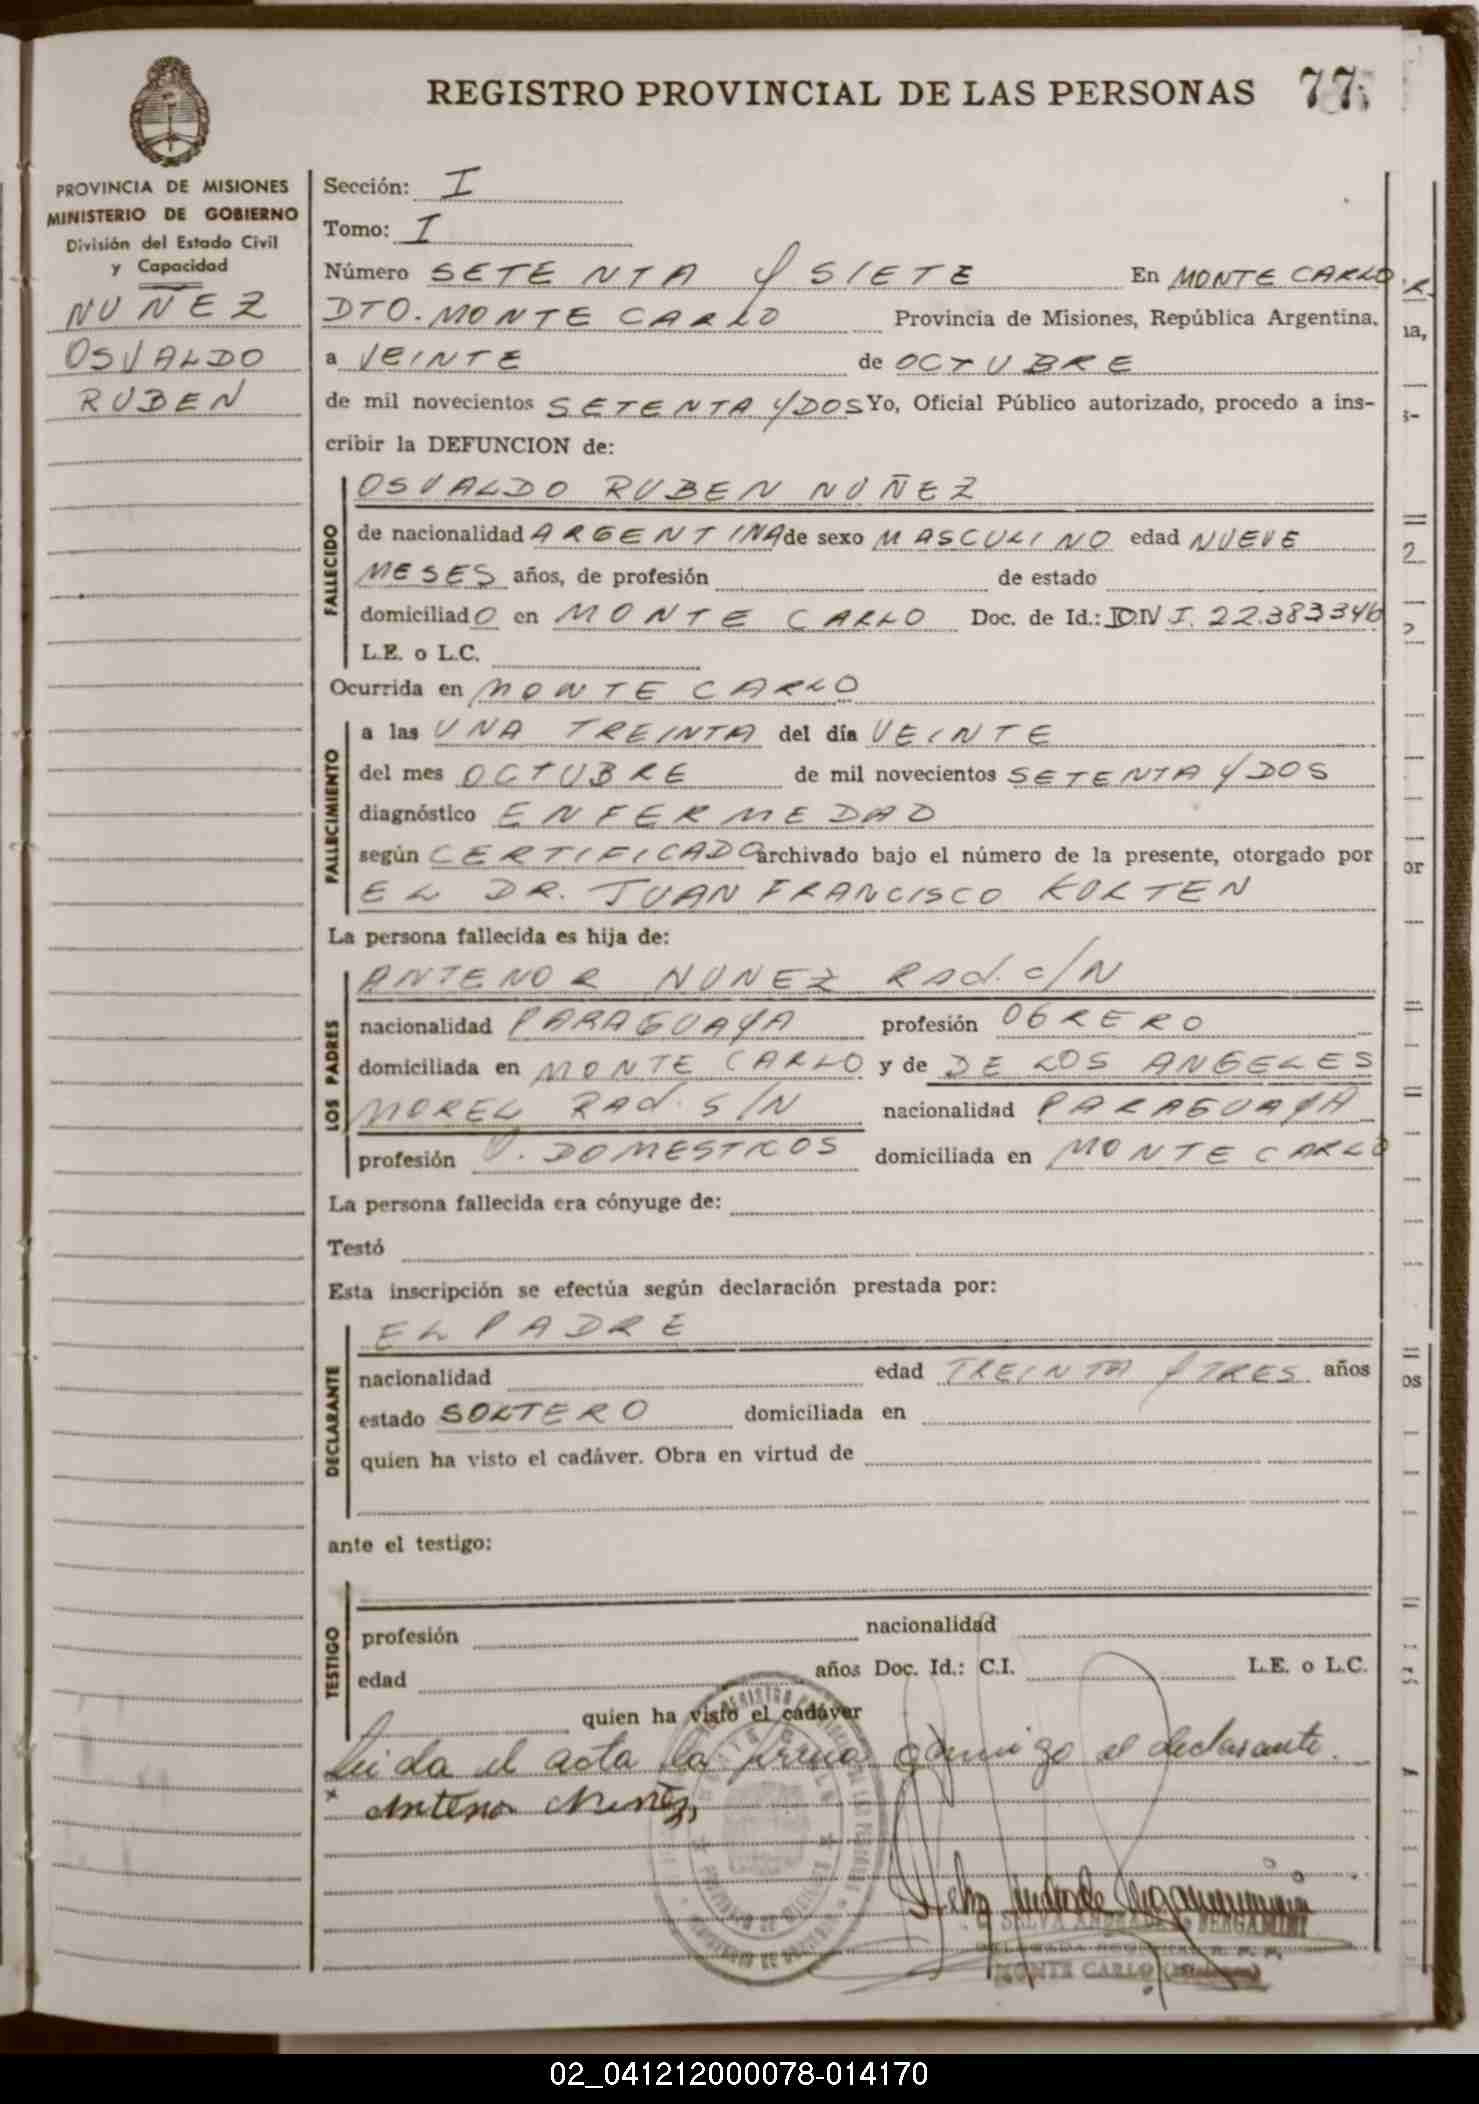 REGISTRO PROVINCIAL DE LAS PERSONAS 77
PROVINCIA DE MISIONES
MINISTERIO DE GOBIERNO
División del Estado Civil
y Capacidad
NUÑEZ
OSVALDO
RUBEN
Sección: I
Tomo: I
Número SETENTA Y SIETE En MONTE CARLO
DTO. MONTE CARLO Provincia de Misiones, República Argentina,
a VEINTE de OCTUBRE
de mil novecientos SETENTA Y DOS Yo, Oficial Público autorizado, procedo a ins-
cribir la DEFUNCION de:
FALLECIDO
OSVALDO RUBEN NUÑEZ
de nacionalidad ARGENTINA de sexo MASCULINO edad NUEVE
MESES años, de profesión de estado
domiciliado en MONTE CARLO Doc. de Id.: D.N I. 22.383346
L.E. o L.C.
Ocurrida en MONTE CARLO
FALLECIMIENTO
a las UNA TREINTA del día VEINTE
del mes OCTUBRE de mil novecientos SETENTA Y DOS
diagnóstico ENFERMEDAD
según CERTIFICADO archivado bajo el número de la presente, otorgado por
EL DR. JUAN FRANCISCO KORTEN
La persona fallecida es hija de:
LOS PADRES
ANTENOR NUNEZ Rad. c/N
nacionalidad PARAGUAYA profesión OBRERO
domiciliada en MONTE CARLO y de DE LOS ANGELES
MOREL Rad. S/N nacionalidad PARAGUAYA
profesión DOMESTICOS domiciliada en MONTE CARLO
La persona fallecida era cónyuge de:
Testó
Esta inscripción se efectúa según declaración prestada por:
DECLARANTE
EL PADRE
nacionalidad edad TREINTA Y TRES años
estado SOLTERO domiciliada en
quien ha visto el cadáver. Obra en virtud de
ante el testigo:
TESTIGO
profesión nacionalidad
edad años Doc. Id.: C.I. L.E. o L.C.
quien ha visto el cadáver
Leida el acta la firma conmigo el declarante.
x Antenor Nuñez
SELVA ANDRADE de VERGAMINI
MONTE CARLO
02_041212000078-014170